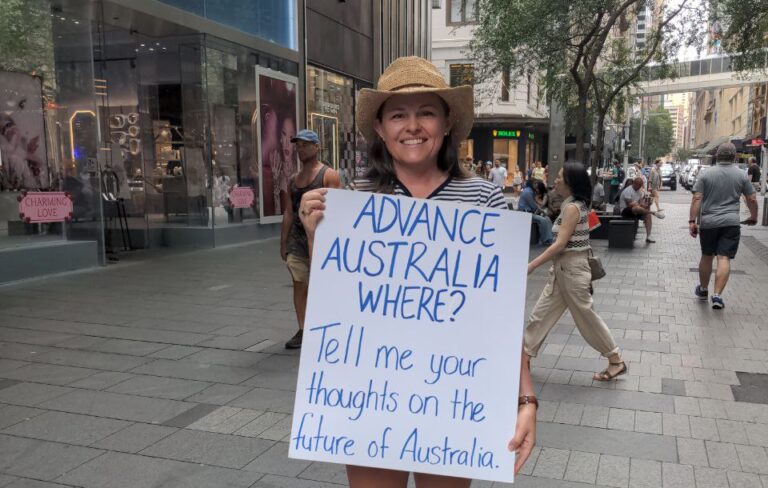 ADVANCE
AUSTRALIA
WHERE?
Tell me your
thoughts on the
future of Australia.
CHARMING
LOVE
ROLEX